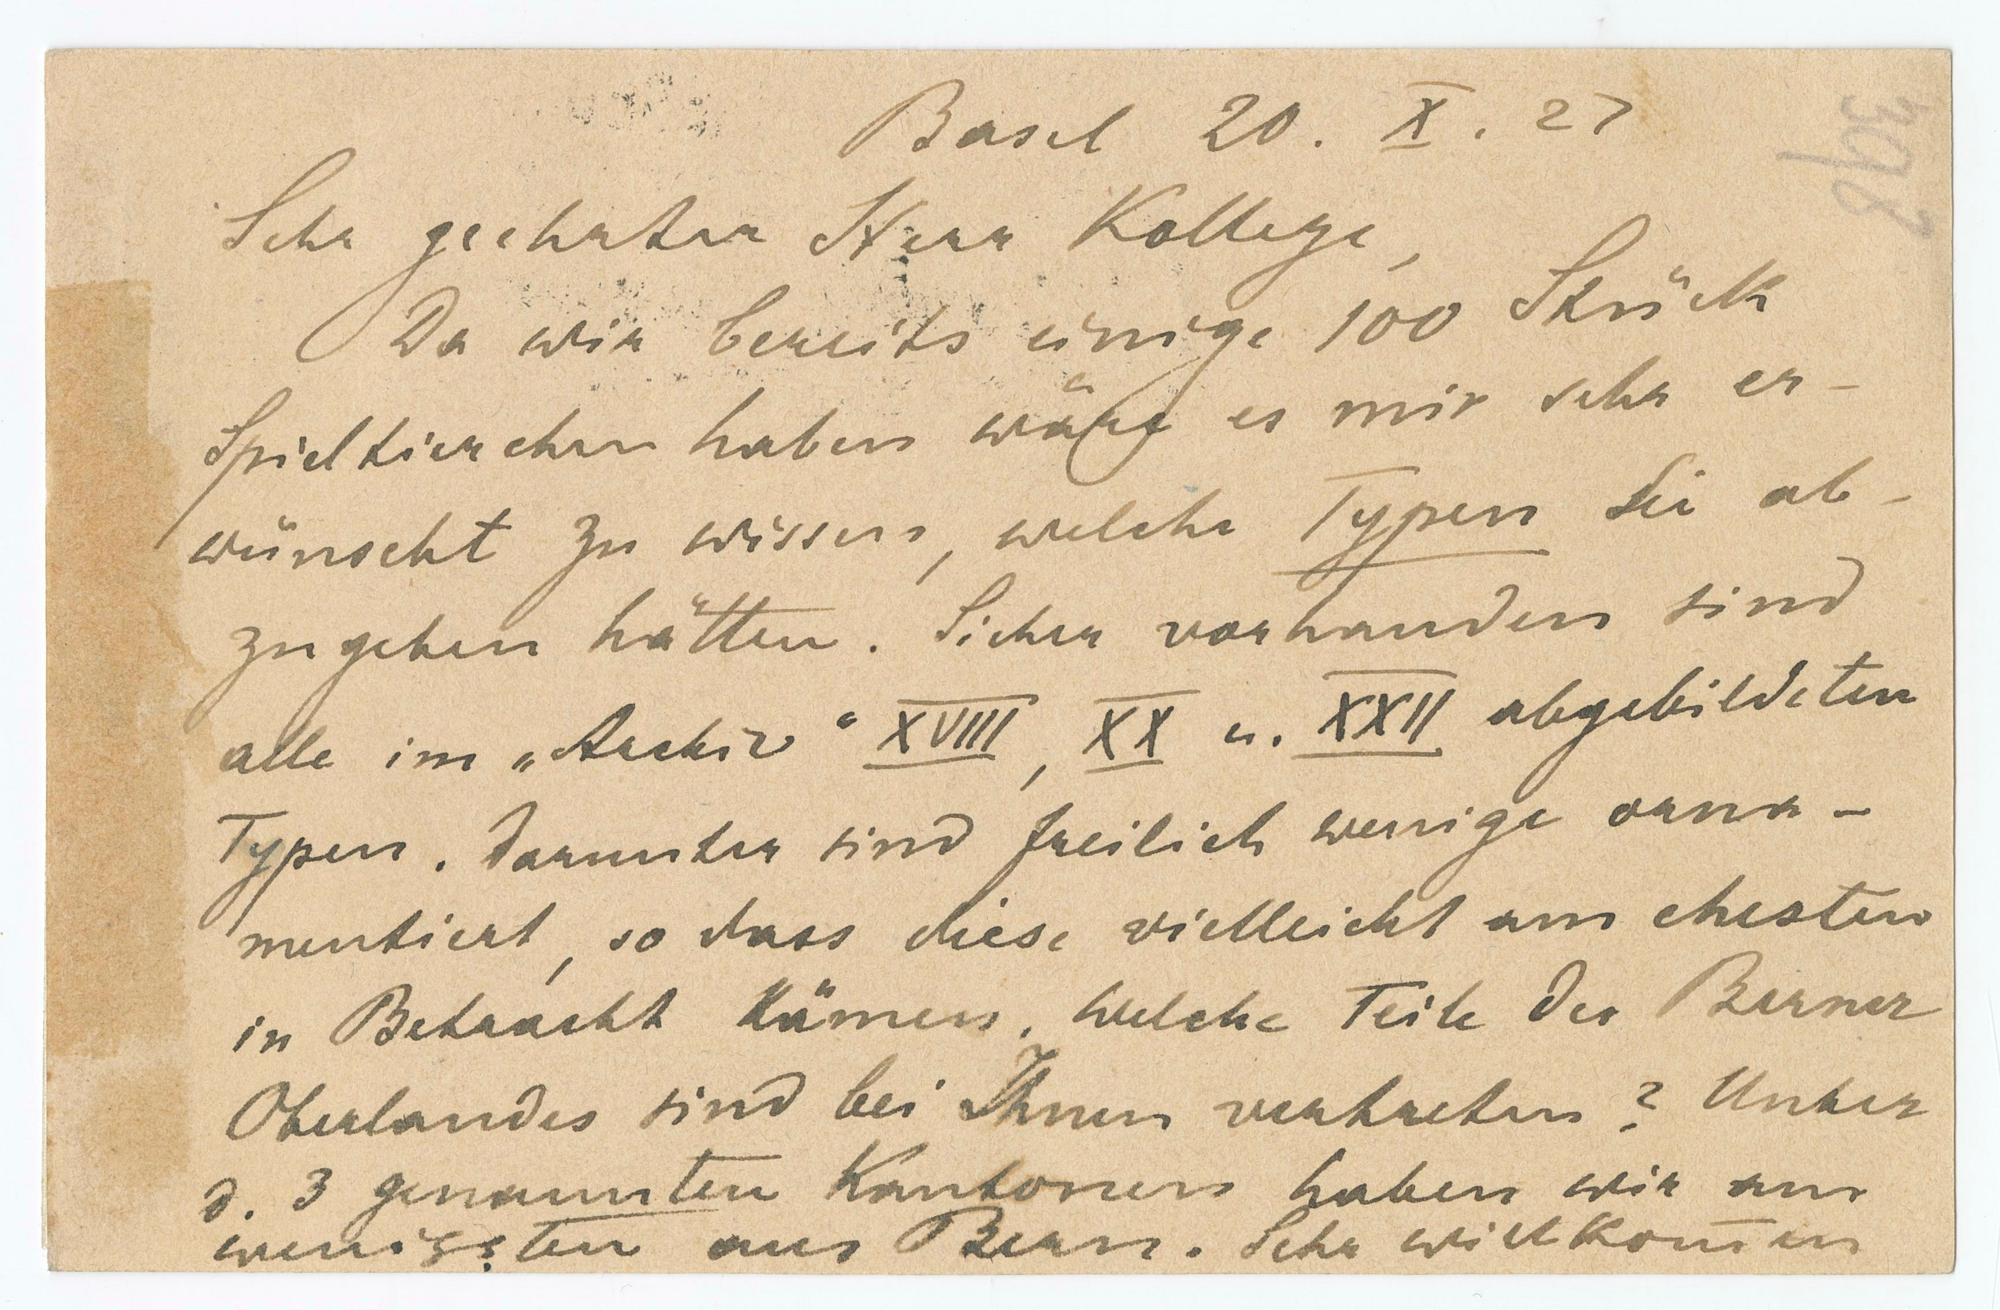 Basel 20. X. 27
Sehr geehrter Herr Kollege,
Da wir bereits einige 100 Stück
Spieltierchen haben wäre es mir sehr er-
wünscht zu wissen, welche Typen Sie ab-
zugeben hätten. Sicher vorhanden sind
alle im „Archiv“ XVIII, XX u. XXII abgebildeten
Typen. Darunter sind freilich wenige orna-
mentiert, so dass diese vielleicht am ehesten
in Betracht kämen. Welche Teile des Berner
Oberlandes sind bei Ihnen vertreten? Unter
d. 3 genannten Kantonen haben wir am
wenigsten aus Bern. Sehr willkom̄en
398